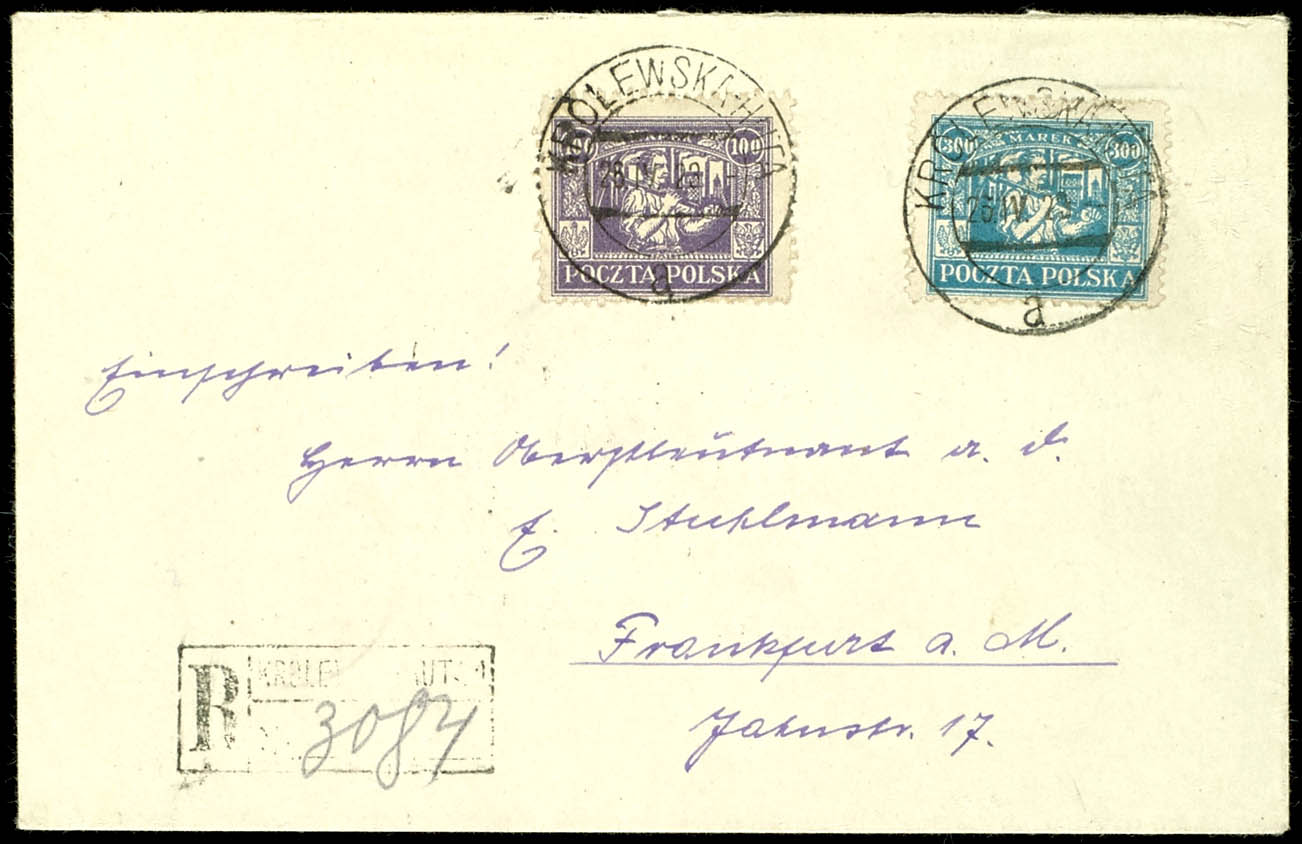 KRÓLEWSKA HUTA
100 MAREK 100
26 IV. 23. -
POCZTA POLSKA
a
KRÓLEWSKA HUTA
300 MAREK 300
26 IV. 23. -
POCZTA POLSKA
a
Einschreiben!
Herrn Oberstleutnant a. d.
E. Stuhlmann
Frankfurt a. M.
Jahnstr. 17.
R KRÓLEWSKA HUTA
3084